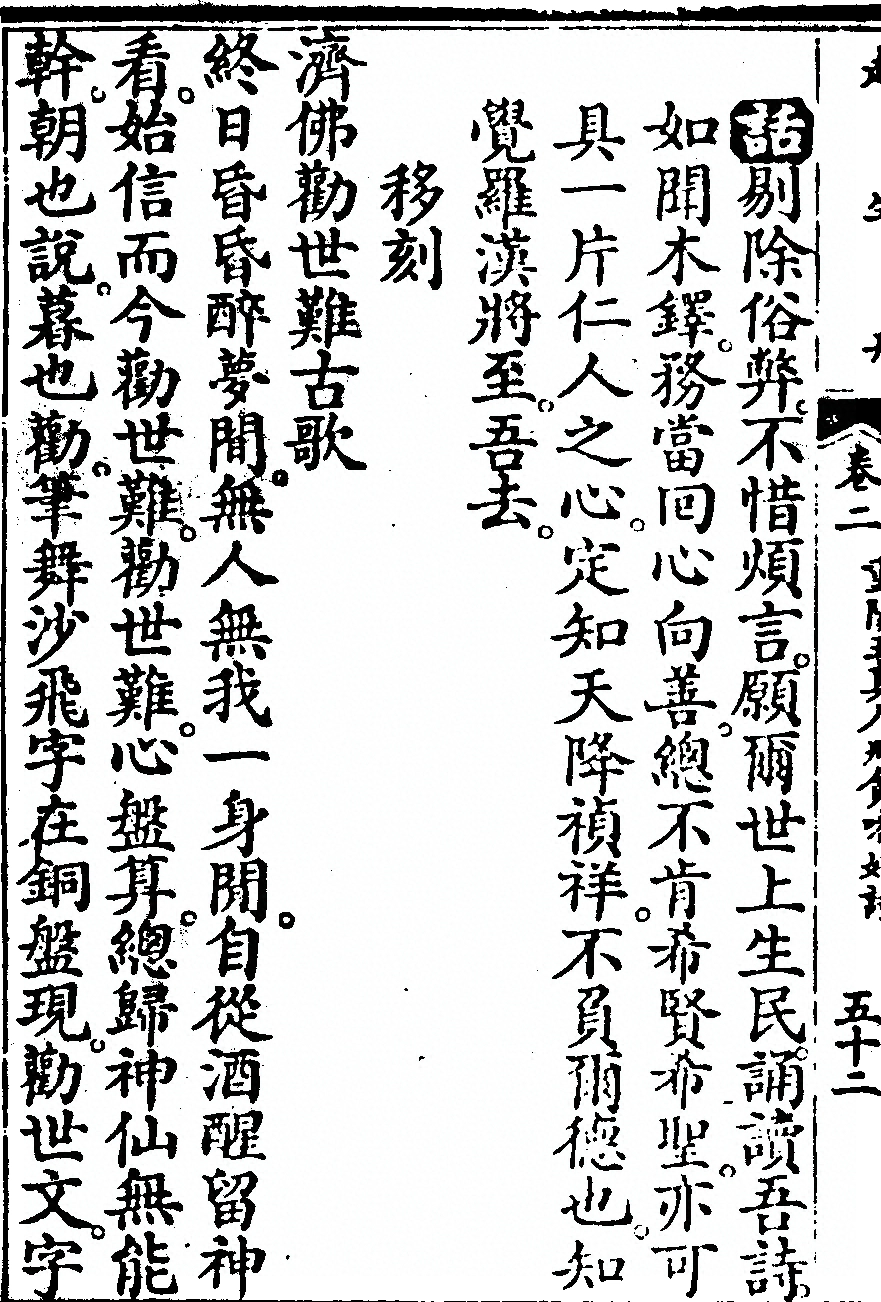 卷二
五十二
話剔除俗弊。不惜煩言。願爾世上生民。誦讀吾詩。
如聞木鐸。務當回心向善。總不肯希賢希聖。亦可
具一片仁人之心。定知天降禎祥。不負爾德也。知
覺羅漢將至。吾去。
移刻
濟佛勸世難古歌
終日昏昏醉夢間。無人無我一身閒。自從酒醒留神
看。始信而今勸世難。勸世難。心盤算。總歸神仙無能
幹。朝也說。暮也勸。筆舞沙飛字在銅盤現。勸世文。字